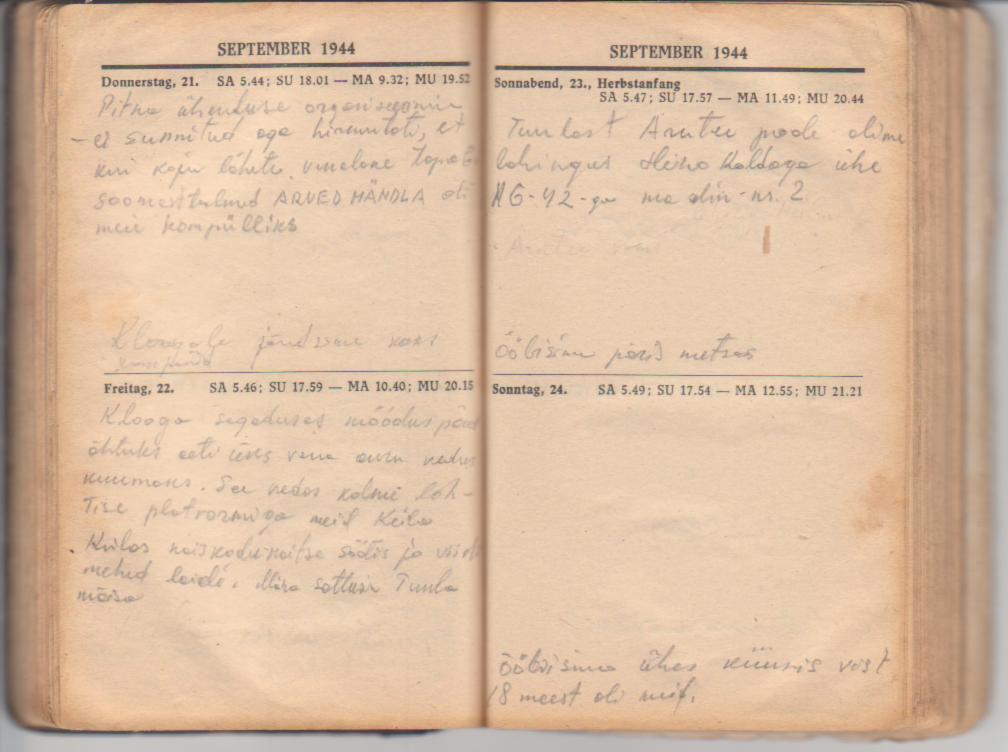 SEPTEMBER 1944
Donnerstag, 21. SA 5.44; SU 18.01 — MA 9.32; MU 19.52
Pitka ühenduse organiseerimine
– ei sunnitud aga hirmutati, et
kui koju lähete, venelane tapab
soomest tulnud ARVED MÄNDLA oli
meie kompülliks
Kloogale jõudsime kaks
Freitag, 22. SA 5.46; SU 17.59 — MA 10.40; MU 20.15
Klooga segaduses möödus päev
õhtuks aeti üks vana auru vedur
kuumaks. See vedas kolme lah-
tise platvormiga meid Keila
Keilas naiskodukaitse söötis ja
mehed laiali. Mina sattusin Tuula
mõisa
SEPTEMBER 1944
Sonnabend, 23., Herbstanfang
SA 5.47; SU 17.57 — MA 11.49; MU 20.44
Tuulast Arutee poole olime
lahingus Heino Kaldaga ühe
MG-42-ga ma olin nr. 2
Arutee
ööbisime päris metsas
Sonntag, 24. SA 5.49; SU 17.54 — MA 12.55; MU 21.21
ööbisime ühes küünis vast
18 meest oli meid.